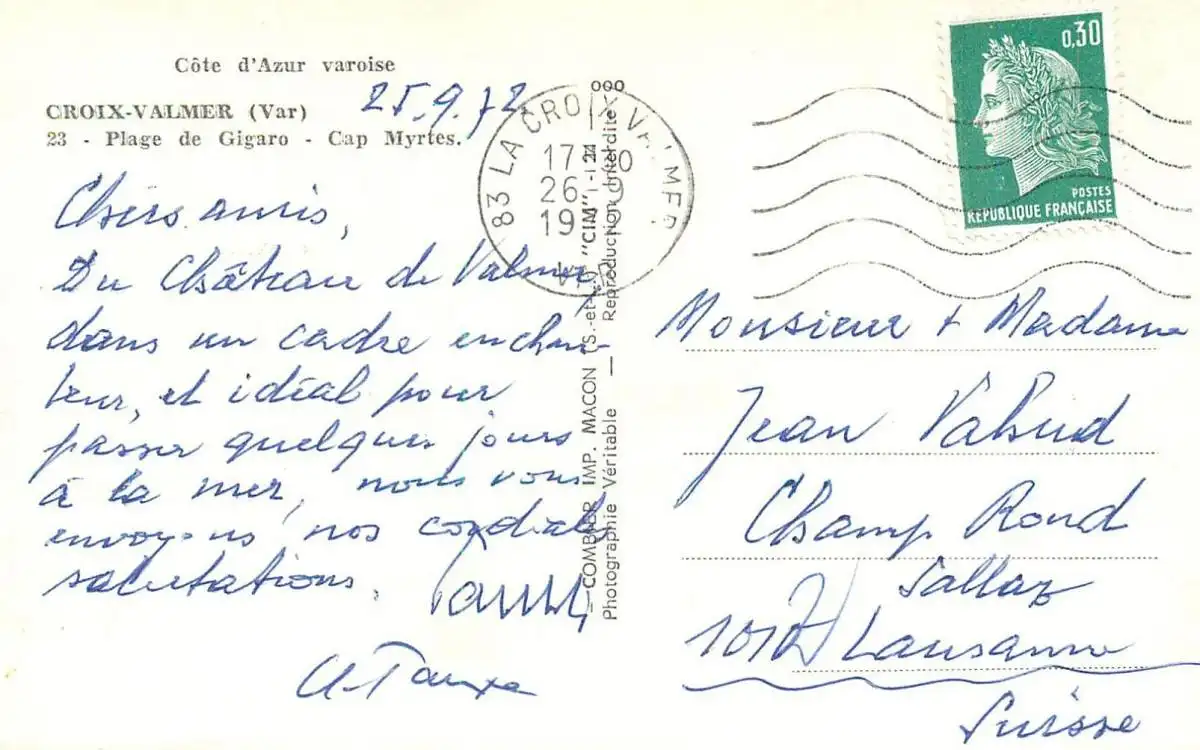 Côte d'Azur varoise
CROIX-VALMER (Var)
23 - Plage de Gigaro - Cap Myrtes.
25.9.72
Chers amis,
Du Château de Valmer,
dans un cadre enchan-
teur, et idéal pour
passer quelques jours
à la mer, nous vous
envoyons nos cordiales
salutations.
83 LA CROIX VALMER
26 9
19
COMBIER IMP. MACON
"CIM"
Photographie Véritable — Reproduction Interdite
0,30
POSTES
RÉPUBLIQUE FRANÇAISE
Monsieur + Madame
Jean
Champ Rond
Sallaz
1012 Lausanne
Suisse